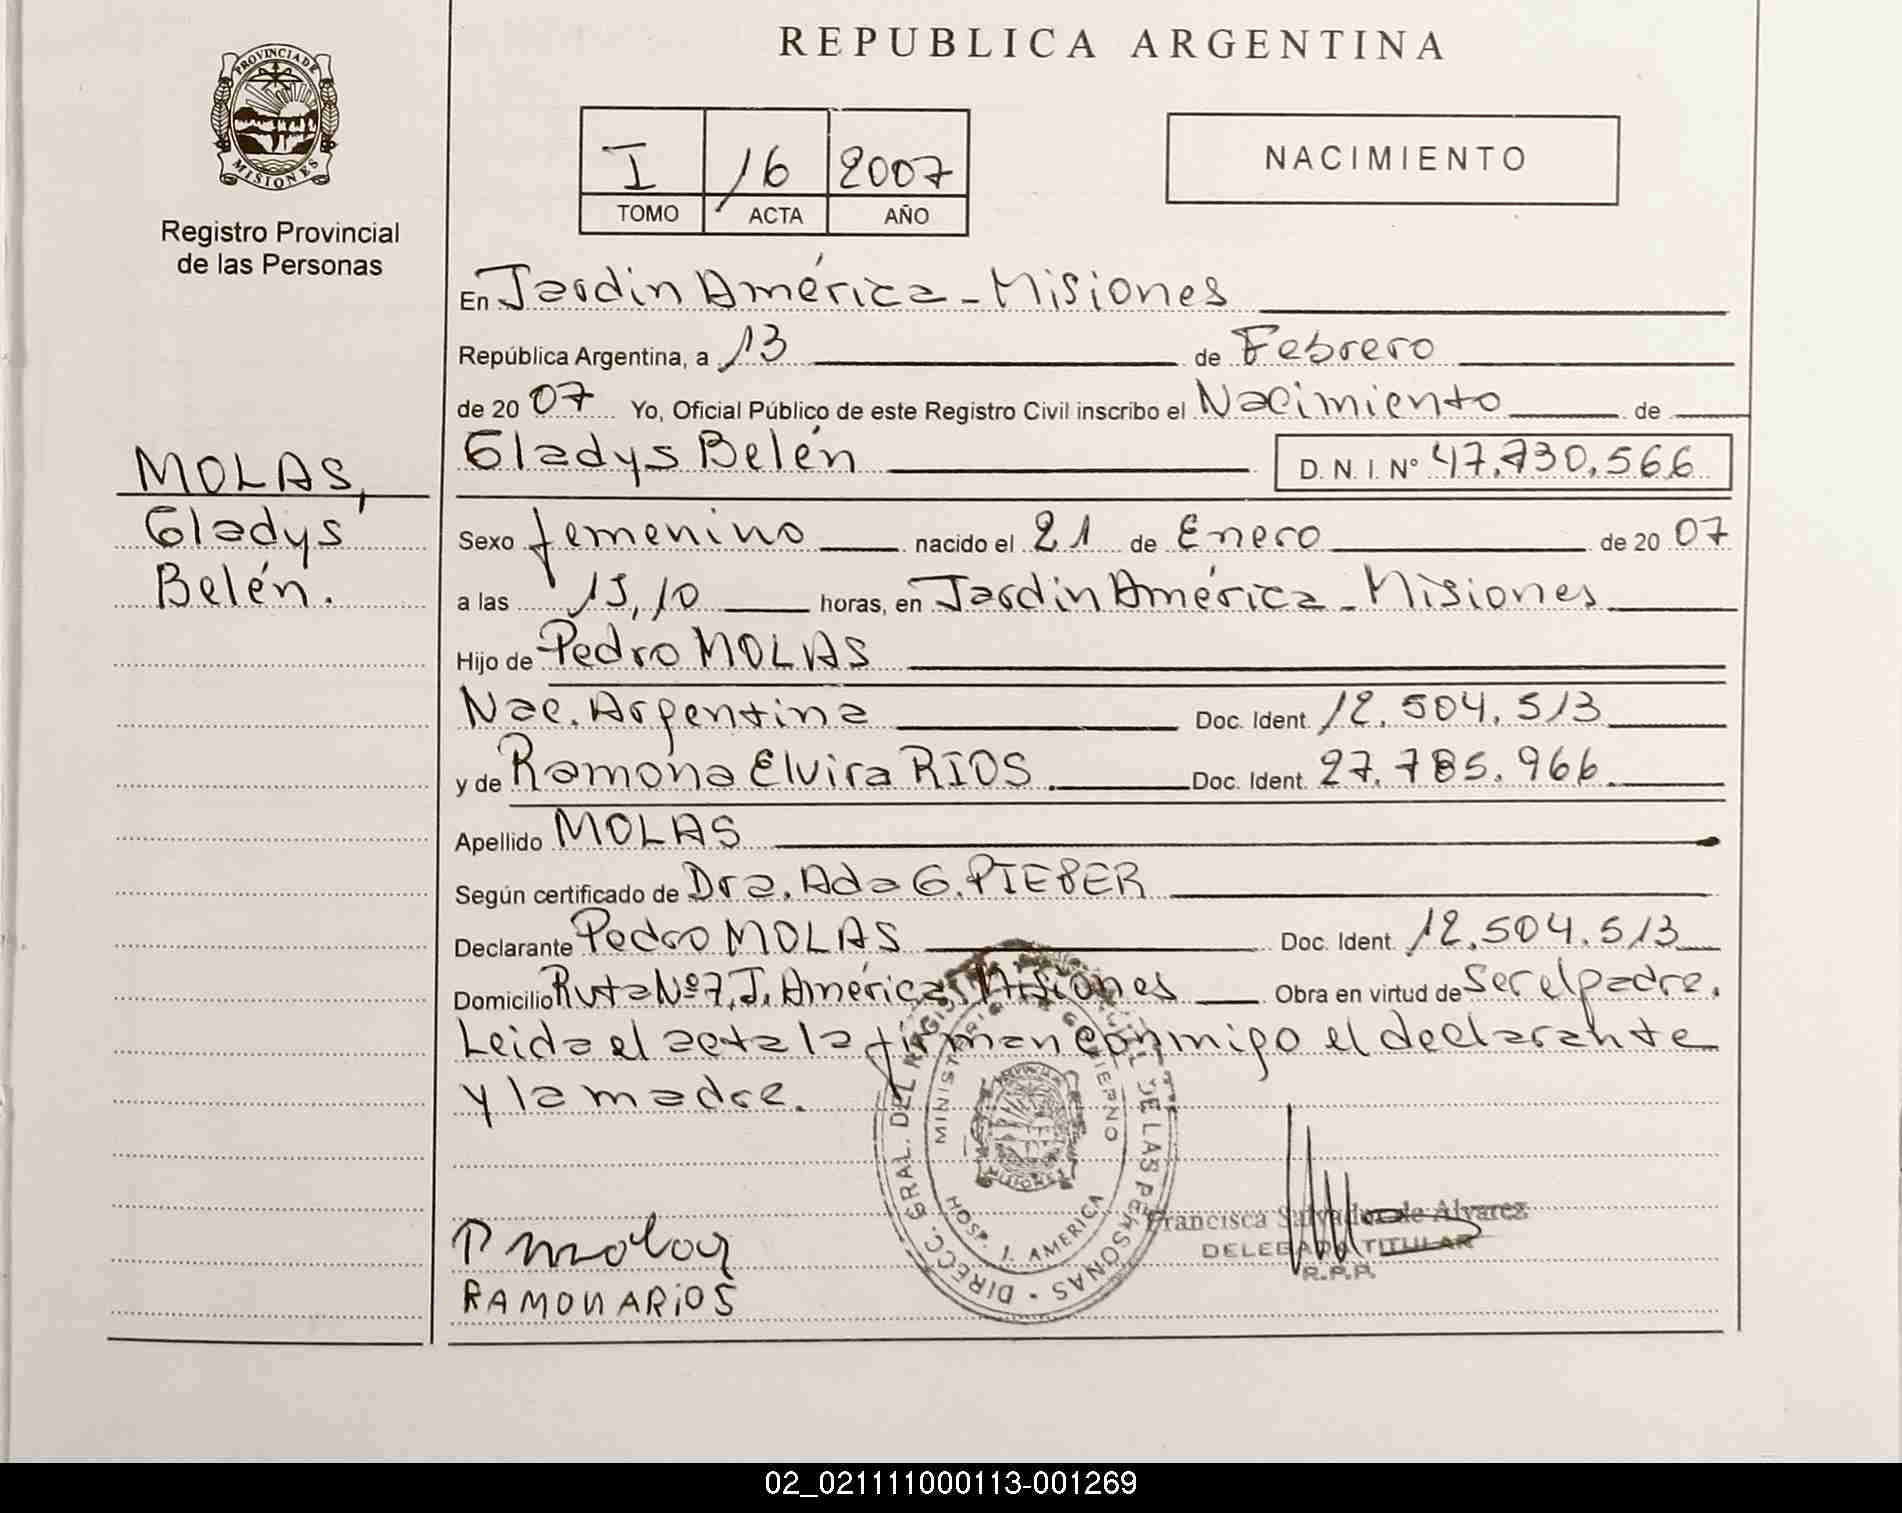 REPUBLICA ARGENTINA
PROVINCIA DE
MISIONES
Registro Provincial
de las Personas
I 16 2007
TOMO ACTA AÑO
NACIMIENTO
En Jardin América - Misiones
República Argentina, a 13 de Febrero
de 20 07 Yo, Oficial Público de este Registro Civil inscribo el Nacimiento de
MOLAS,
Gladys
Belén.
Gladys Belén D. N. I. Nº 47.730.566
Sexo femenino nacido el 21 de Enero de 20 07
a las 15,10 horas, en Jardin América - Misiones
Hijo de Pedro MOLAS
Nac. Argentina Doc. Ident. 12.504.513
y de Ramona Elvira RIOS. Doc. Ident. 27.785.966.
Apellido MOLAS
Según certificado de Dra. Ada G. PIEBER
Declarante Pedro MOLAS Doc. Ident. 12.504.513
Domicilio Ruta Nº 7, J. América, Misiones Obra en virtud de Ser el padre.
Leida el acta la firman conmigo el declarante
y la madre.
DIRECC. GRAL. DEL REGISTRO PROVINCIAL DE LAS PERSONAS
MINISTERIO DE GOBIERNO
HOSP. J. AMERICA
MISIONES
Francisca Salvador de Alvarez
DELEGADA TITULAR
R.P.P.
P Molas
RAMONA RiOS
02_021111000113-001269